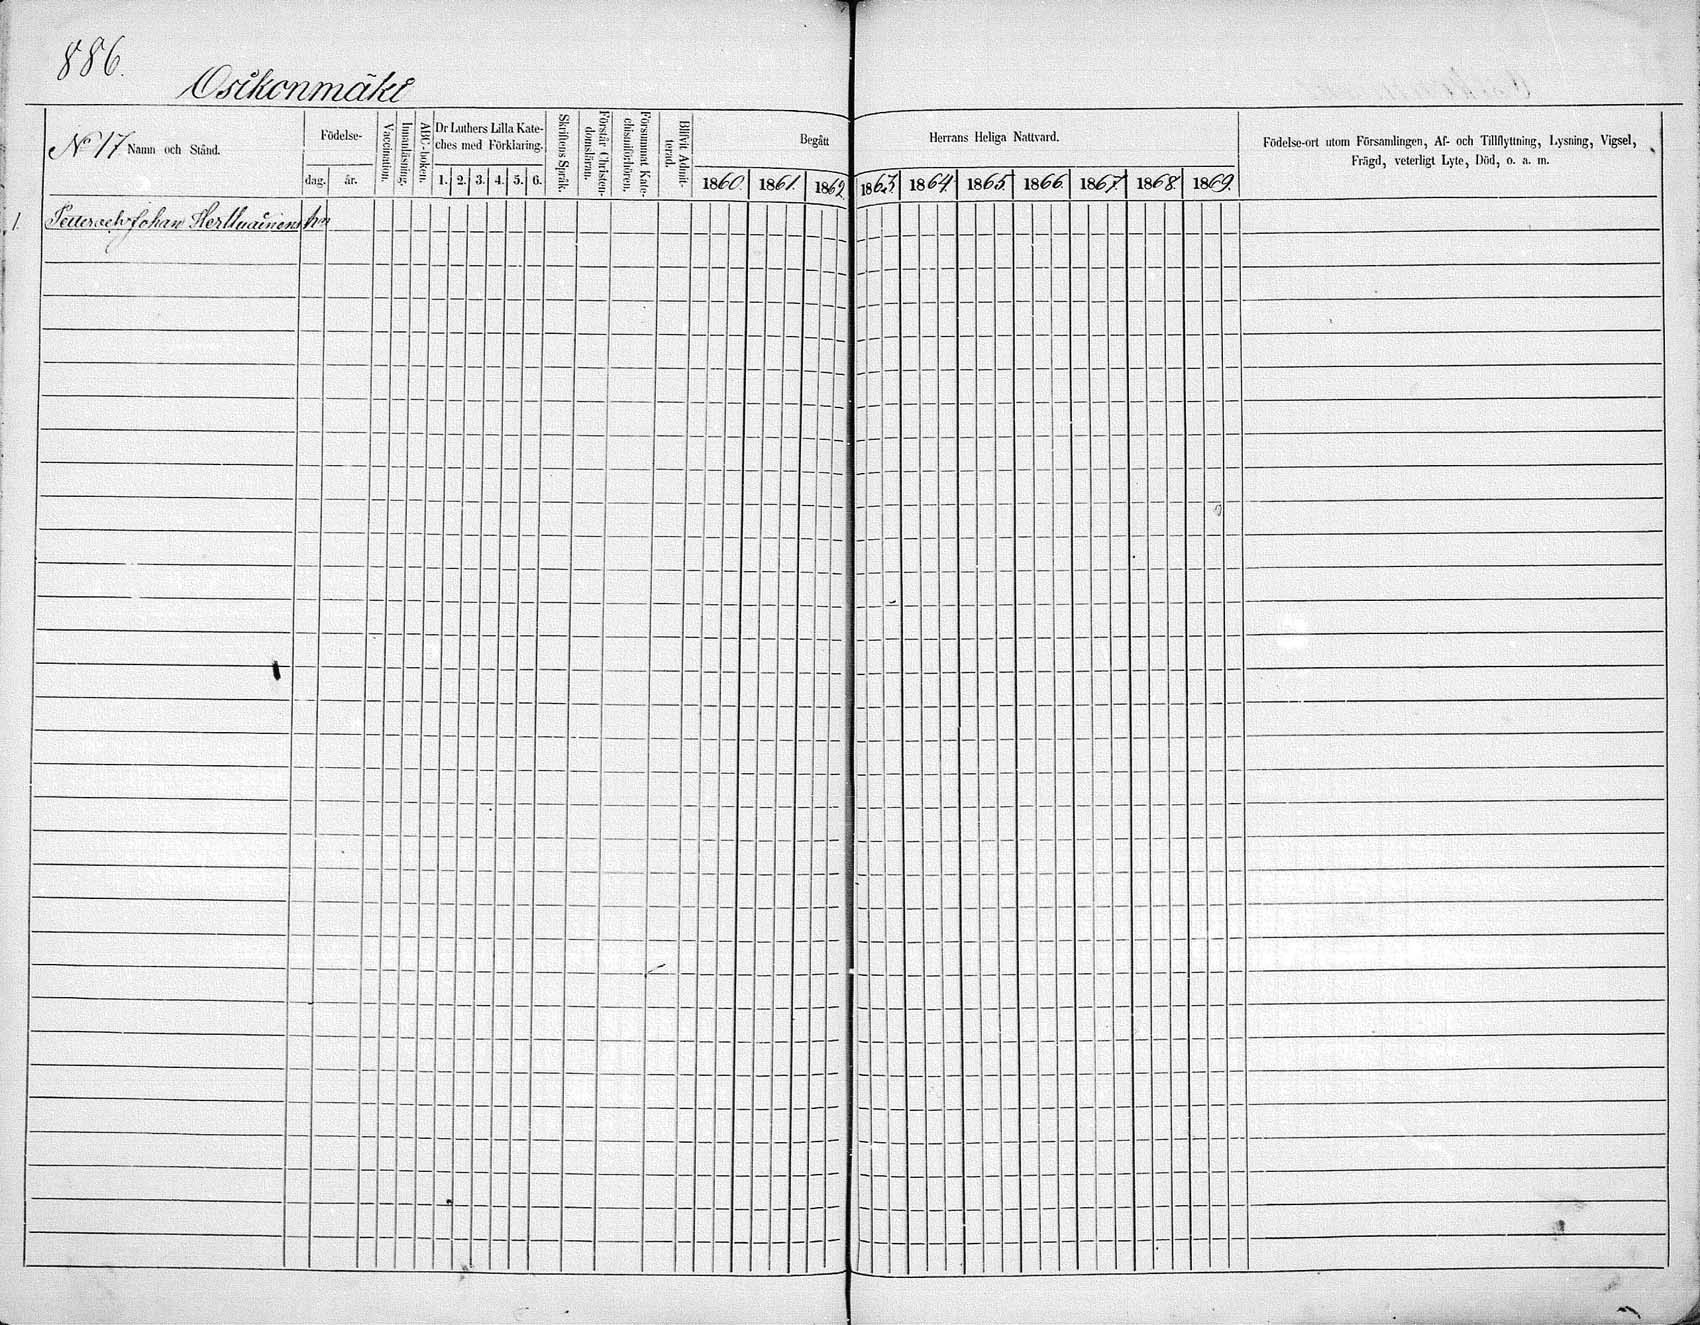 886.
Osikonmäki
No 17 Namn och Stånd.
Födelse-
dag. år.
Vaccination.
Innanläsning.
ABC-boken.
Dr Luthers Lilla Kate-
ches med Förklaring.
1. 2. 3. 4. 5. 6.
Skriftens Språk.
Förstår Christen-
domsläran.
Försummat Kate-
chismiförhören.
Blifvit Admit-
terad.
Begått Herrans Heliga Nattvard.
1860. 1861. 1862. 1863. 1864. 1865. 1866. 1867. 1868. 1869.
Födelse-ort utom Församlingen, Af- och Tillflyttning, Lysning, Vigsel,
Frägd, veterligt Lyte, Död, o. a. m.
1. Petter och Johan Herttuainens hn